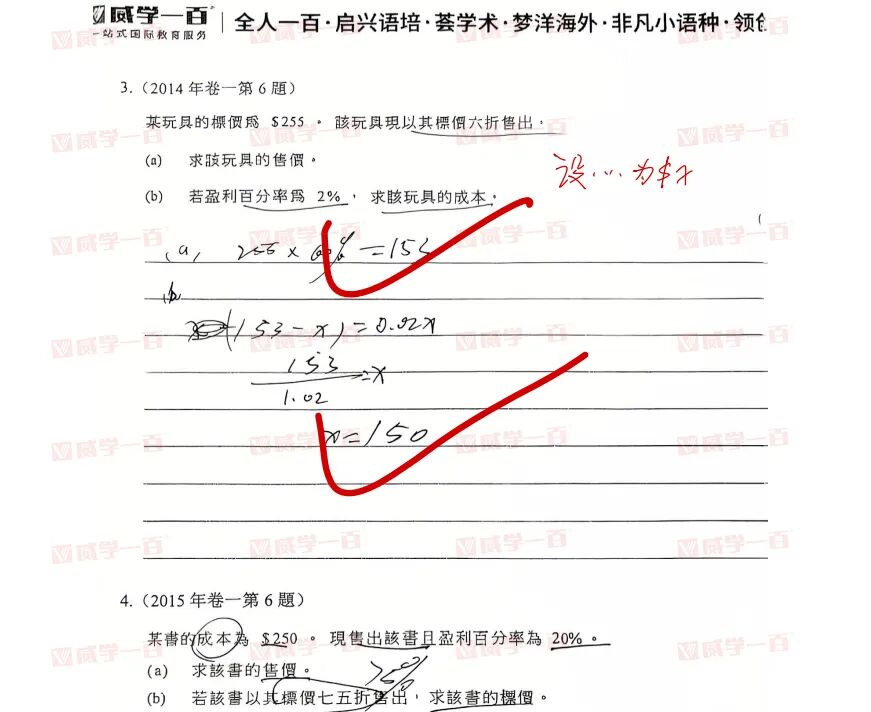 威学一百
一站式国际教育服务
全人一百·启兴语培·荟学术·梦洋海外·非凡小语种·领创
3.（2014 年卷一第 6 題）
某玩具的標價為 $255 。 該玩具現以其標價六折售出。
(a) 求該玩具的售價。
设…为$x
(b) 若盈利百分率為 2%， 求該玩具的成本。
(a) 255 × 60% = 153
(b
(153 - x) = 0.02x
153
1.02
= x
x = 150
4.（2015 年卷一第 6 題）
某書的成本為 $250 。 現售出該書且盈利百分率為 20% 。
(a) 求該書的售價。
(b) 若該書以其標價七五折售出， 求該書的標價。